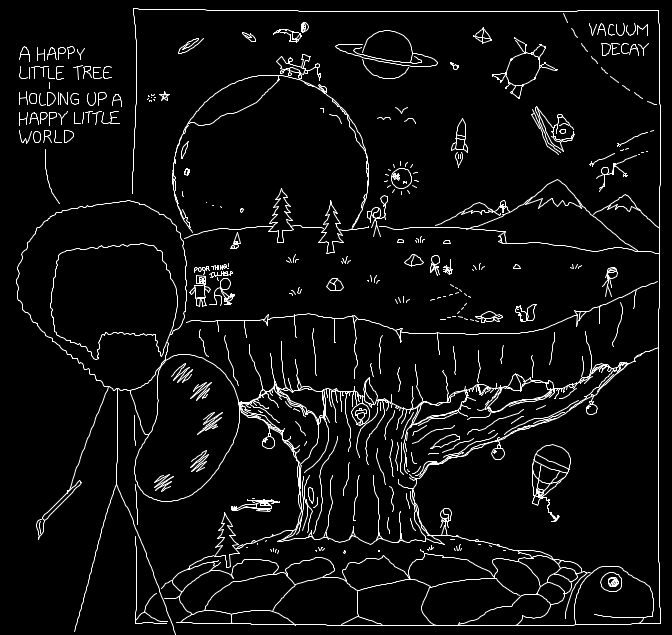 A HAPPY
LITTLE TREE
HOLDING UP A
HAPPY LITTLE
WORLD
VACUUM
DECAY
POOR THING!
I'LL HELP